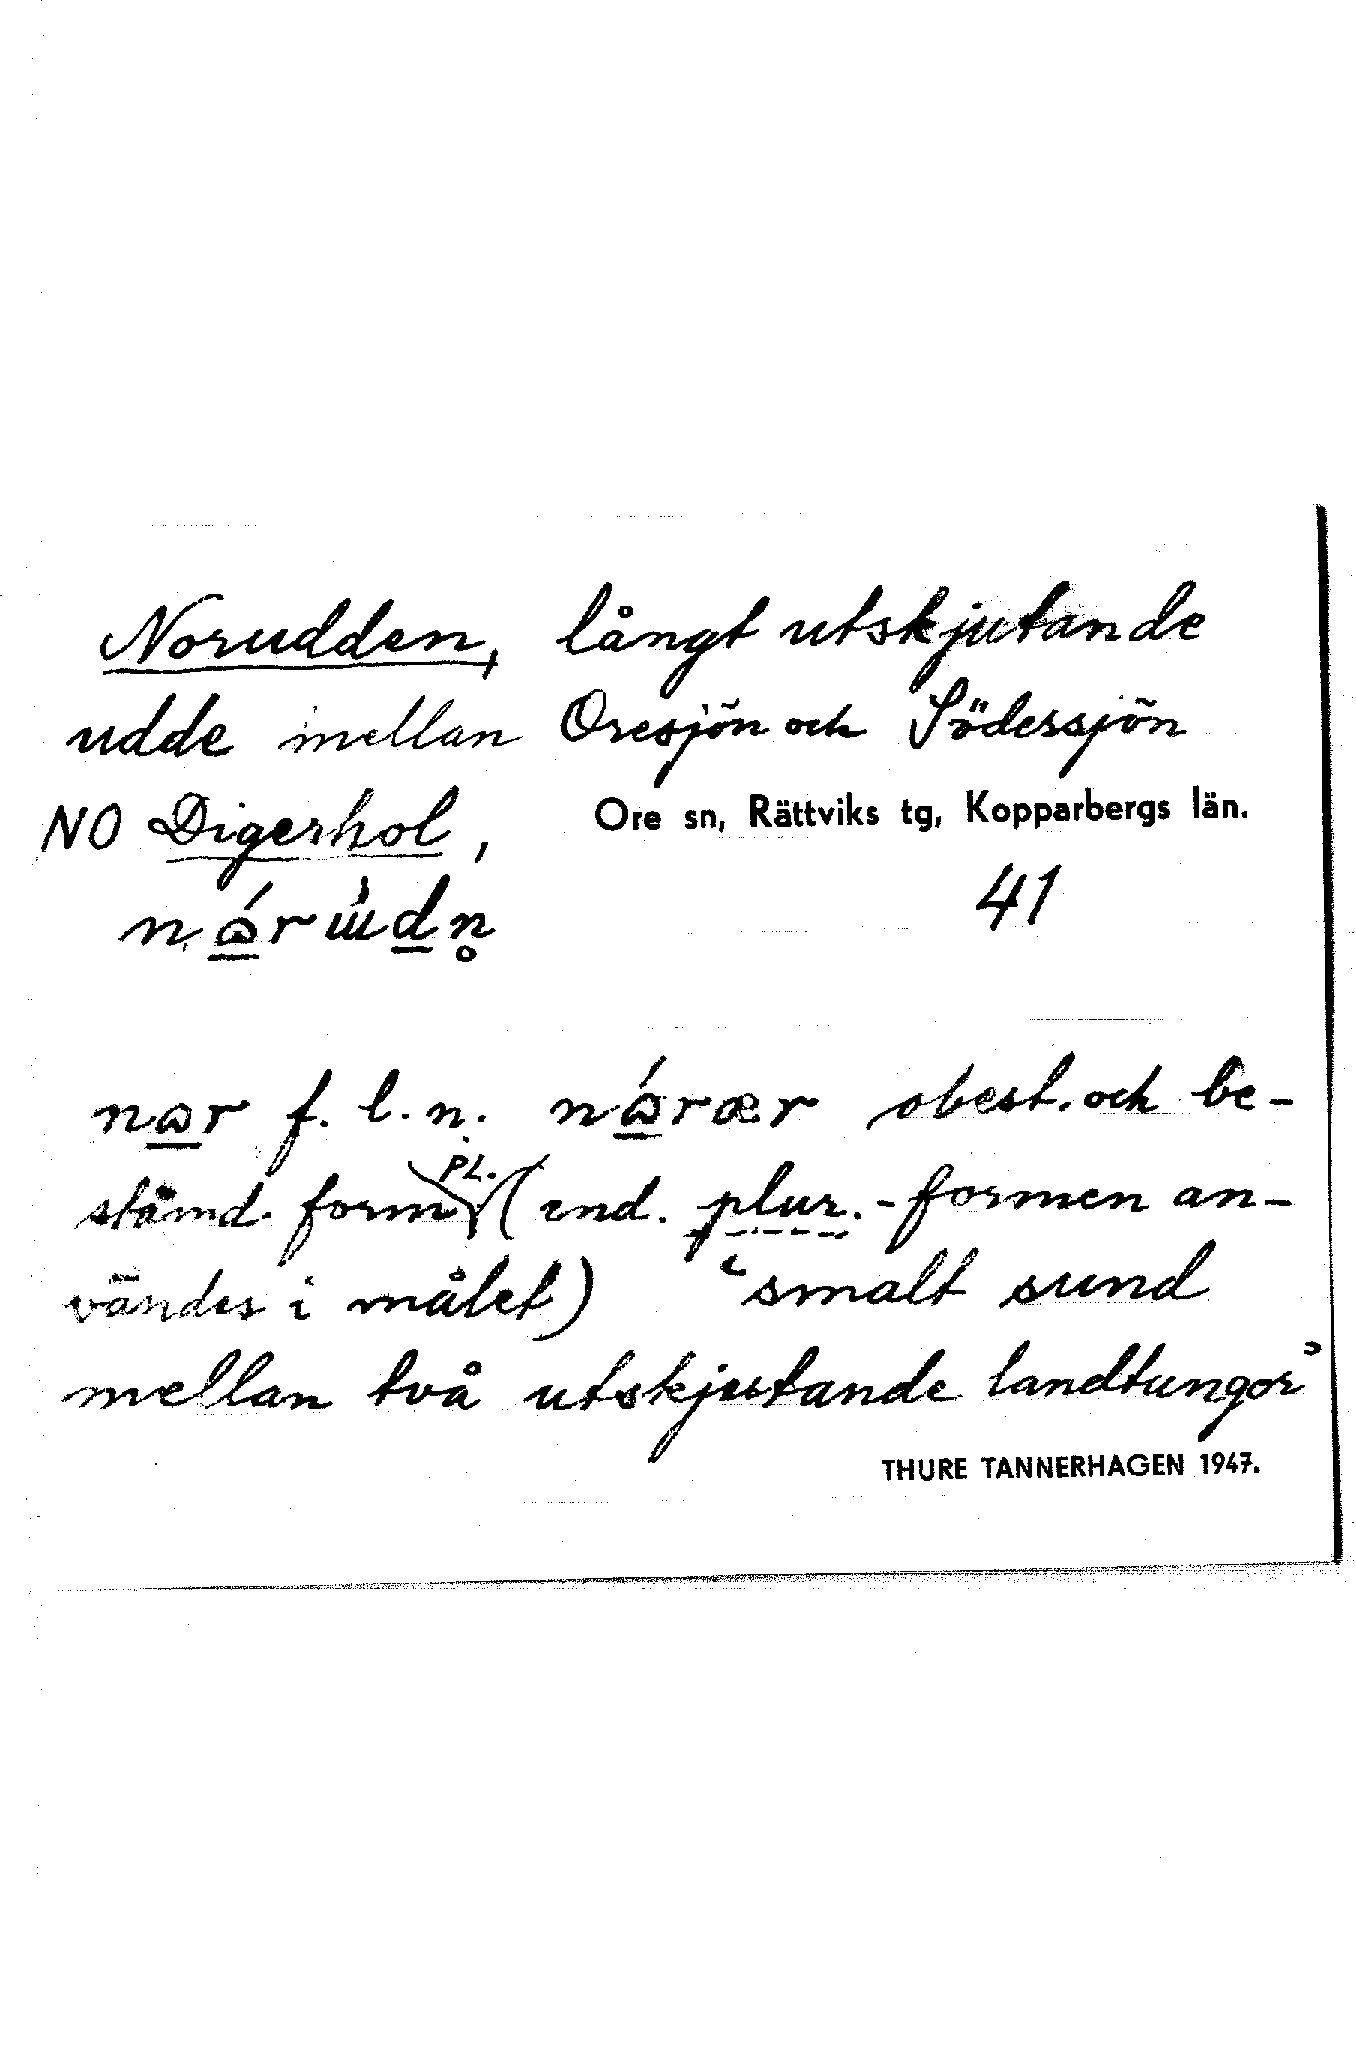 Norudden, långt utskjutande
udde mellan Oresjön och Södersjön
NO Digerhol,
Ore sn, Rättviks tg, Kopparbergs län.
41
nar f. l. n. obest. och be-
stämd. form PL. (end. plur.-formen an-
vändes i målet) ‘smalt sund
mellan två utskjutande landtungor’
THURE TANNERHAGEN 1947.